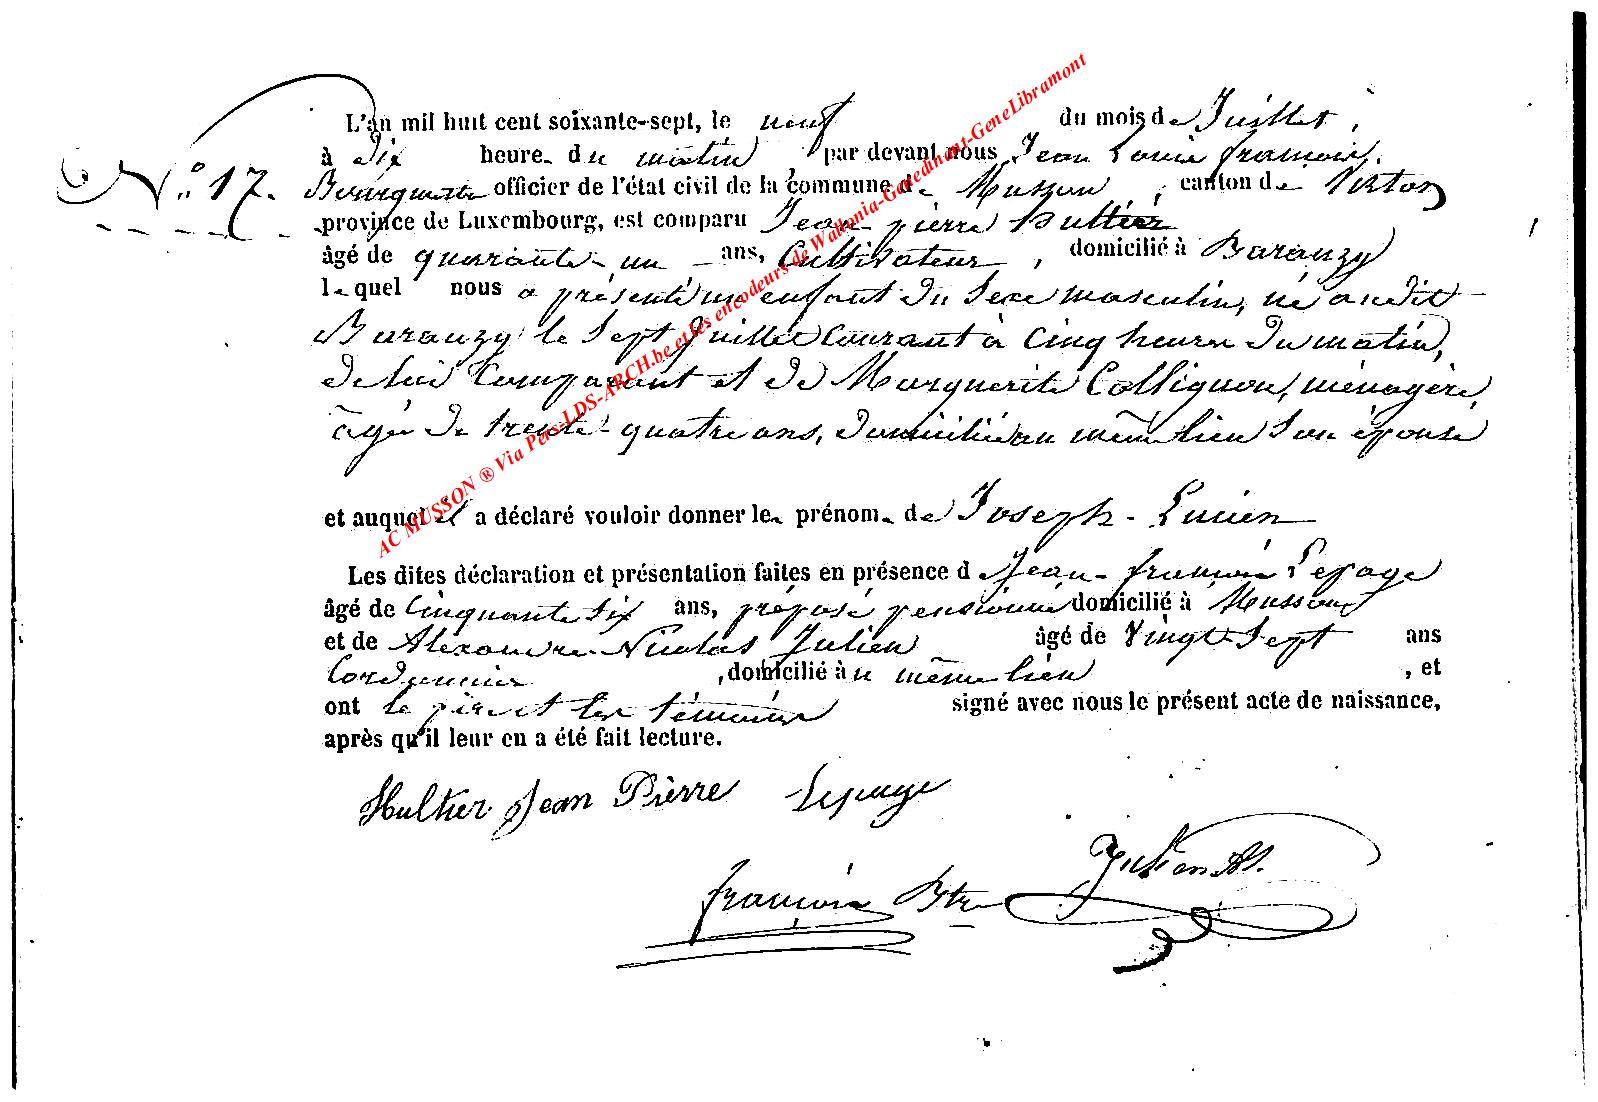 L'an mil huit cent soixante-sept, le neuf du mois de Juillet,
à dix heure du matin par devant nous Jean Louis françois
N° 17. Bourguet officier de l'état civil de la commune de Musson, canton de Virton
province de Luxembourg, est comparu Jean pierre hultier
âgé de quarante-un ans, Cultivateur, domicilié à Baranzy
lequel nous a présenté un enfant du sexe masculin, né audit
Baranzy le sept Juillet Courant à Cinq heures du matin,
de lui Comparant et de Marguerite Collignon, ménagère,
âgée de trente-quatre ans, domiciliée au même lieu son épouse
et auquel il a déclaré vouloir donner le prénom de Joseph-Lucien
Les dites déclaration et présentation faites en présence de Jean-françois Lepage
âgé de Cinquante six ans, préposé pensionné domicilié à Musson
et de Alexandre Nicolas Julien âgé de vingt-sept ans
Cordonnier, domicilié au même lieu, et
ont le père et les témoins signé avec nous le présent acte de naissance,
après qu'il leur en a été fait lecture.
Hultier Jean Pierre Lepage
Julien Al.
françois Btre
AC MUSSON ® Via Pers-LDS-ARCH.be et les encodeurs de Wallonia-Genedinant-GeneLibramont